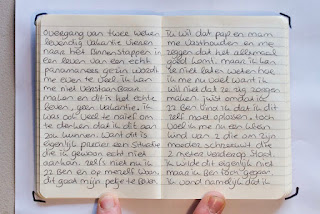 overgang van twee weken
levendig vakantie vieren
naar het binnenstappen in
een leven van een echt
panamanees gezin wordt
me even te veel. ik kan
me niet verstaanbaar
maken en dit is het echte
leven, geen vakantie. ik
was ook veel te naïef om
te denken dat ik dit aan
zou kunnen. want dit is
eigenlijk precies een situatie
die ik gewoon echt niet
aankan. zelfs niet nu ik
22 ben en op mezelf woon.
dit gaat mijn petje te boven.
ik wil dat pap en mam
me vasthouden en me
zeggen dat het allemaal
goed komt. maar ik kan
ze niet laten weten hoe
ik me nu voel want ik
wil niet dat ze zich zorgen
maken. juist omdat ik
22 ben vind ik dat ik dit
zelf moet oplossen, toch
voel ik me nu een klein
kind van 2 die om zijn
moeder schreeuwt die
2 meter verderop staat.
ik wilde dit eigenlijk niet
maar ik ben toch gegaan.
ik vond namelijk dat ik